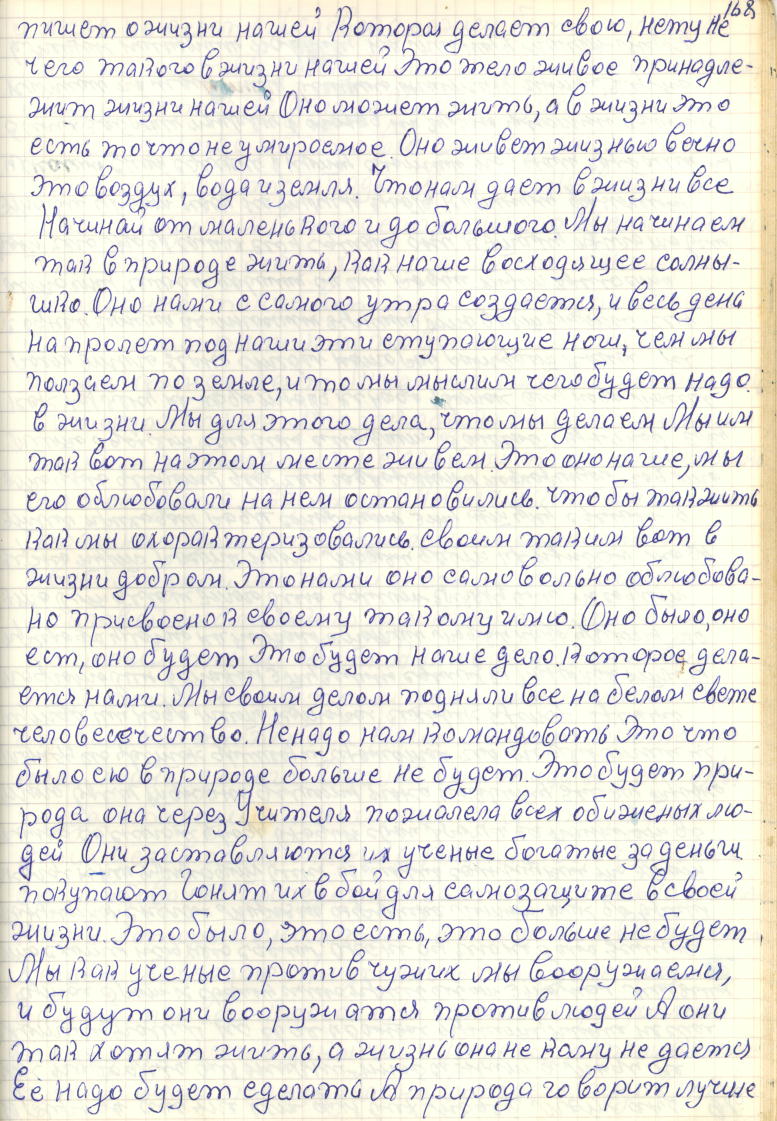 168
пишет о жизни нашей Которая делает свою, нету не
чего такого в жизни нашей Это тело живое принадле-
жит жизни нашей Оно может жить, а в жизни это
есть то что не умироемое. Оно живет жизнью вечно
Это воздух, вода и земля. Что нам дает в жизни все
Начинай от маленького и до большого. Мы начинаем
так в природе жить, как наше восходящее солны-
шко. Оно нами с самого утра создается, и весь дена
на пролет под наши эти ступающие ноги, чем мы
ползаем по земле, и то мы мыслим чего будет надо
в жизни. Мы для этого дела, что мы делаем Мы им
так вот на этом месте живем. Это оно наше, мы
его облюбовали на нем остановились. чтобы так жить
как мы охорактеризовались. своим таким вот в
жизни добром. Это нами оно самовольно облюбова-
но присвоено к своему такому имю. Оно было, оно
ест, оно будет Это будет наше дело. Которое дела-
ется нами. Мы своим делом подняли все на белом свете
человесечество. Ненадо нам командовать Это что
было ею в природе больше не будет. Это будет при-
рода она через Учителя пожалела всех обиженых лю-
дей Они заставляются их ученые богатые за деньги
покупают Гонят их в бой для самозащите в своей
жизни. Это было, это есть, это больше не будет
Мы как ученые против чужих мы вооружаемся,
и будут они вооружатся против людей А они
так хотят жить, а жизнь она не кому не дается
Её надо будет сделати А природа говорит лучше